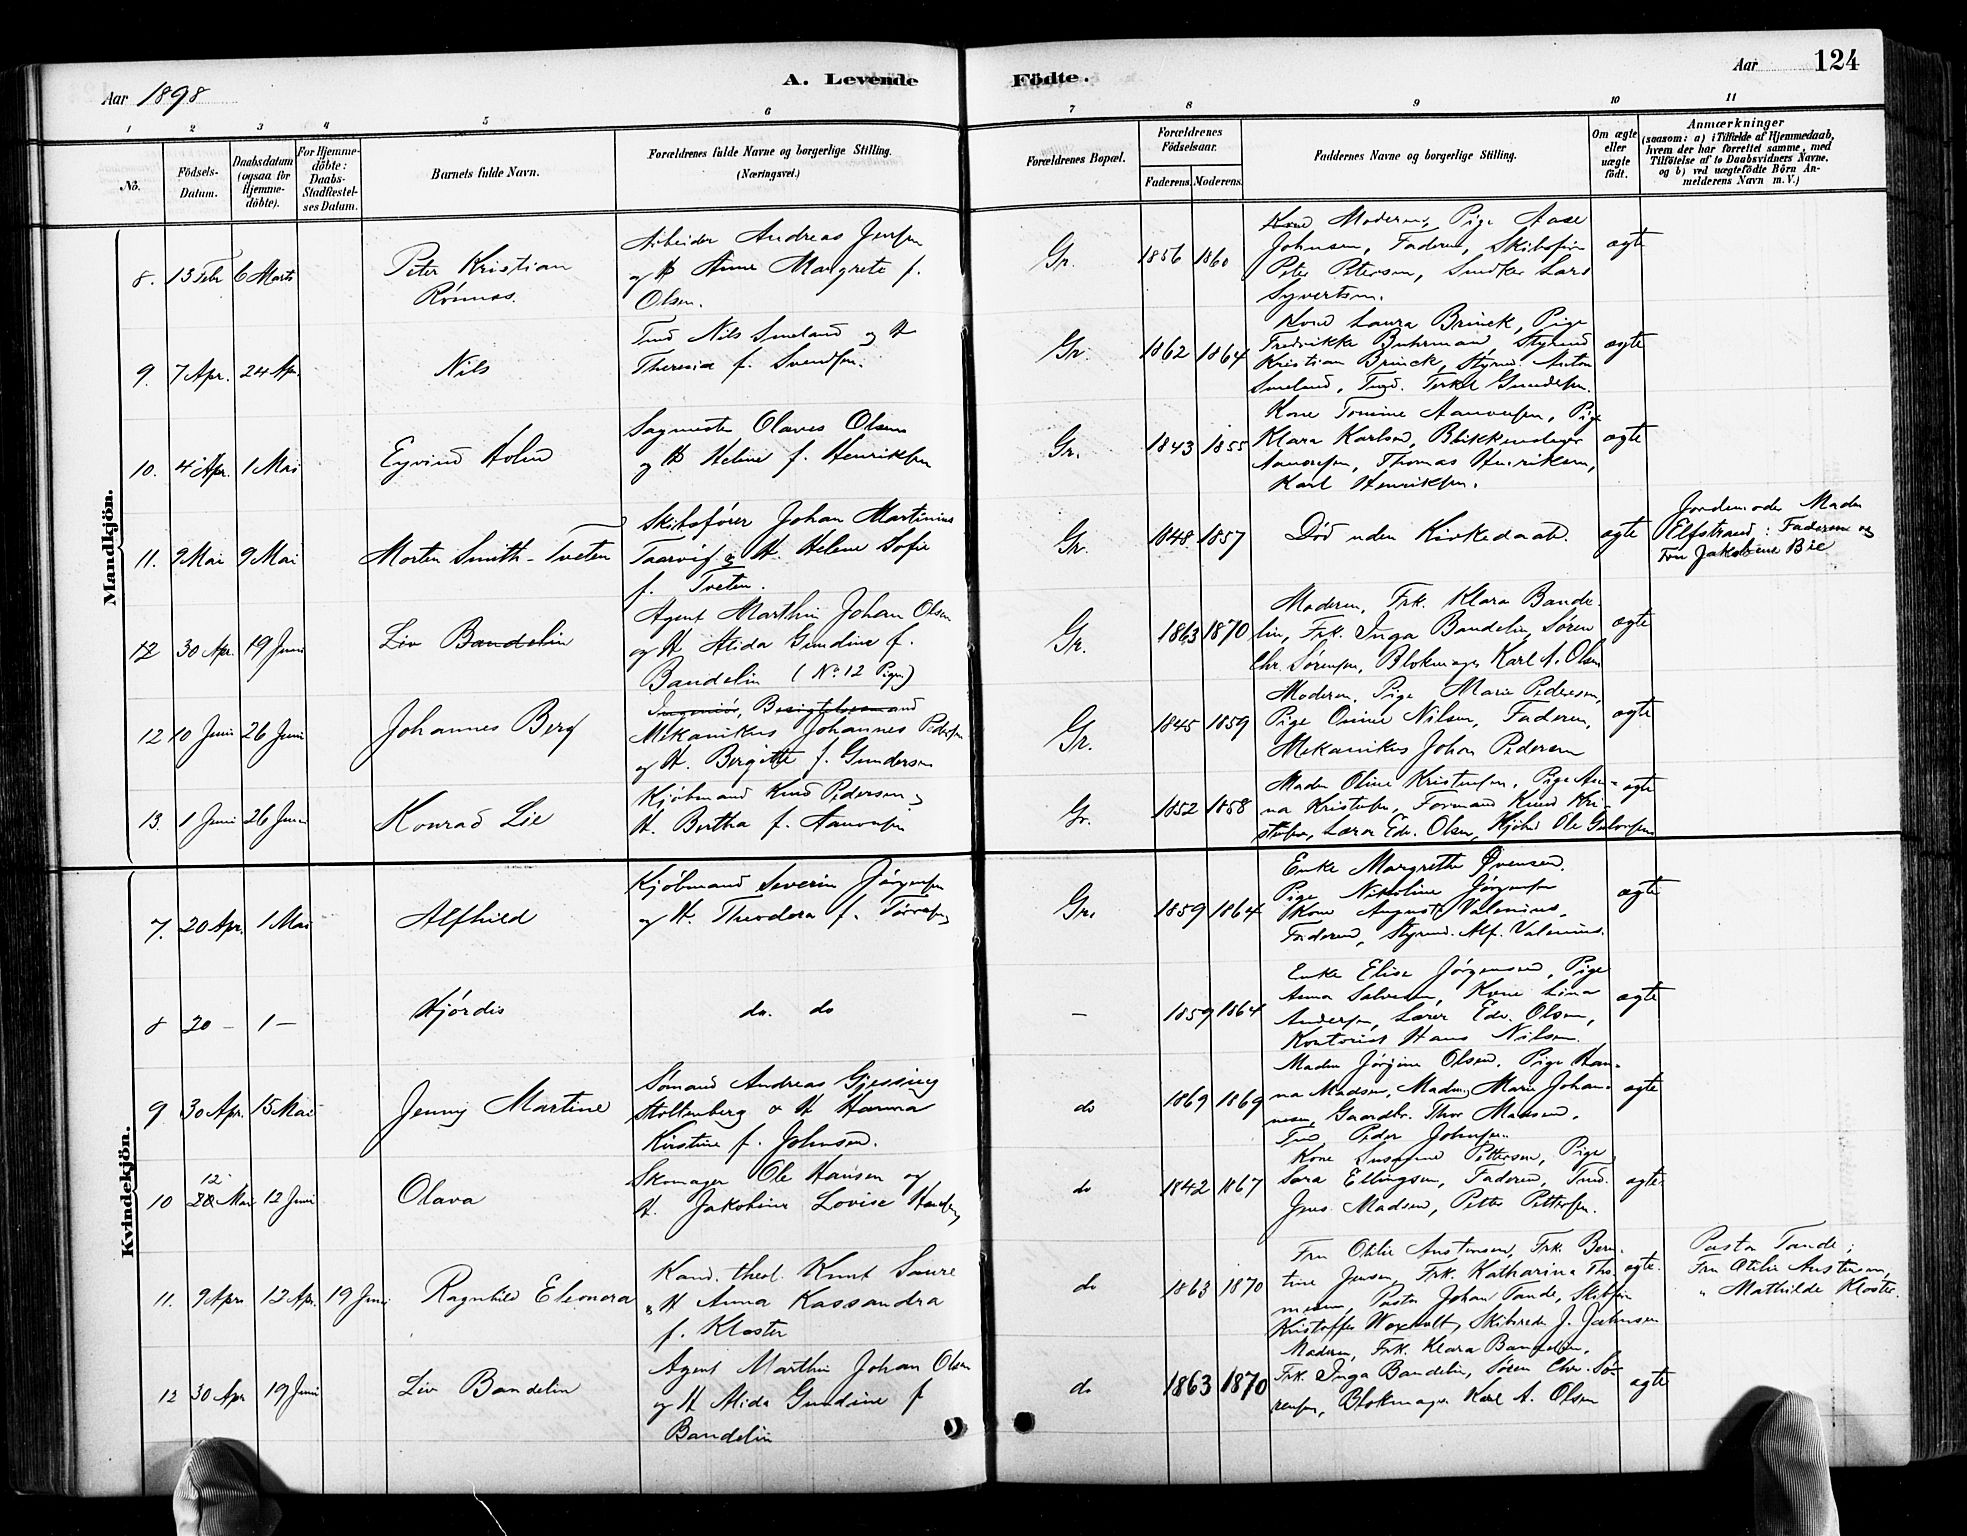 Aar 1898
A. Levende
Födte.
Aar 124
1 2 3 4 5 6 7 8 9 10 11
No.
Födsels-
Datum.
Daabsdatum
(ogsaa for
Hjemme-
döbte).
For Hjemme-
döbte:
Daabs-
Stadfæstel-
ses Datum.
Barnets fulde Navn.
Forældrenes fulde Navne og borgerlige Stilling.
(Næringsvei.)
Forældrenes Bopæl.
Forældrenes
Födselsaar.
Faderens. Moderens.
Faddernes Navne og borgerlige Stilling.
Om ægte
eller
uægte
födt.
Anmærkninger
(saasom: a) i Tilfælde af Hjemmedaab,
hvem der har forrettet samme, med
Tilföielse af to Daabsvidners Navne.
og b) ved uægtefödte Börn An-
melderens Navn m. V.)
Mandkjön.
8. 13 Febr 6 Marts
Peter Kristian
Rönnas.
Arbeider Andreas Jensen
og H Anne Margrete f.
Olsen.
Gr. 1856 1860
Kone Moderen, Pige Aase
Johnsen, Faderen, Skibsfør
Peter Petersen, Snedker Lars
Syvertsen.
ægte
9. 7 Apr. 24 Ap.
Nils
Tmd Nils Smeland og H
Theresia f. Svendsen.
Gr. 1862 1864
Kone Laura Brinck, Pige
Fredrikke Buhrmand, Styrmd
Kristian Brinck, Styrmd. Anton
Smeland, Tmd. Terkel Gundersen.
ægte
10. 4 Apr. 1 Mai
Eyvind Holm
Sagmester Olaves Olsen
og H Helene f. Henriksen
Gr. 1843 1855
Kone Tomine Aanonsen, Pige
Klara Karlsen, Blikkenslager
Aanonsen, Thomas Henriksen,
Karl Henriksen.
ægte
11. 9 Mai 9 Mai
Morten Smith-Tveten
Skibsfører Johan Martinius
Taarvig & H. Helene Sofie
f. Tveten.
Gr. 1848 1857
Död uden Kirkedaab.
ægte
Jordemoder Maden
Elfstrand: Faderen og
Fru Jakobine Bie
12 30 Apr. 19 Juni
Liv Bandelin
Agent Marthin Johan Olsen
og H Alida Gundine f.
Bandelin (No 12 Piger)
Gr. 1863 1870
Moderen, Frk. Klara Bande-
lin, Frk. Inga Bandelin, Sören
Chr. Sørensen, Blokmager Karl A. Olsen
ægte
12 10 Juni 26 Juni
Johannes Berg
Ingeniör, Besigtelsesmand
Mekanikus Johannes Pedersen
og H. Bergitte f. Gundersen
Gr. 1845 1859
Moderen, Pige Marie Pedersen,
Pige Omine Nilsen, Faderen,
Mekanikus Johan Pedersen
ægte
13. 1 Juni 26 Juni
Konrad Lie
Kjöbmand Knud Pedersen &
H. Bertha f. Aanonsen
Gr. 1852 1858
Maden Oline Kristensen, Pige An-
na Kristensen, Formand Knud Kri-
stensen, Lærer Edv. Olsen, Kjöbm Ole Gulovsen
ægte
Kvindekjön.
7. 20 Apr. 1 Mai
Alfhild
Kjöbmand Severin Jørgensen
og H. Theodora f. Tørresen
Gr. 1859 1864
Enke Margrethe Svensen.
Pige Nikoline Jørgensen
Kone Auguste Valenius,
Faderen, Styrmd. Alf. Valenius.
ægte
8 20 - 1 -
Hjördis
do. do
- 1859 1864
Enke Elise Jørgensen, Pige
Anna Salvesen, Kone Lina
Andersen, Lærer Edv. Olsen,
Kontorist Hans Nilsen.
ægte
9 30 Apr. 15 Mai
Jenny Martine
Sömand Andreas Gjessing
Stoltenberg & H Hanna
Kirstine f. Johnsen.
do 1869 1869
Maden Jørgine Olsen. Pige Han-
na Madsen, Maden Marie Johan-
nesen, Gaardbr. Thor Madsen,
Tmd Peder Johnsen.
ægte
12
10 28 Mai 12 Juni
Olava
Skomager Ole Hansen og
H. Jakobine Lovise Hansen
do 1842 1867
Kone Susanne Pettersen, Pige
Sara Ellingsen, Faderen, Tmd.
Jens Madsen, Petter Pettersen.
ægte
11. 9 Apr. 12 Apr. 19 Juni
Ragnhild Eleonora
Kand. theol. Knut Saure
& H Anna Kassandra
f. Kloster
do 1863 1870
Fru Otilie Austensen, Frk. Bern-
tine Jensen, Frk. Katharina Tho-
mesen, Pastor Johan Tande, Skibsfør
Kristoffer Woxholt, Skibsreder J. Jahnsen
ægte.
Pastor Tande;
Fru Otilie Austensen,
" Mathilde Kloster.
12 30 Apr 19 Juni
Liv Bandelin
Agent Marthin Johan Olsen
og H Alida Gundine f
Bandelin
do 1863 1870
Moderen, Frk. Klara Bandelin,
Frk. Inga Bandelin, Sören Chr. Sö-
rensen, Blokmager Karl A. Olsen
ægte